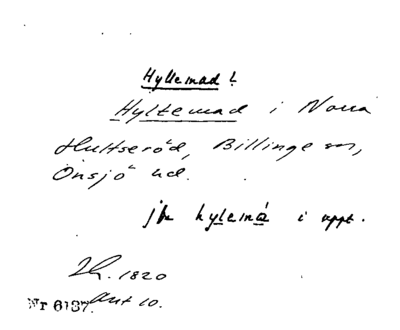 Hyllemad!
Hyltemad i Norra
Hultseröd, Billinge sn,
Onsjö hd.
jfr hylemá i uppt.
1820
Akt 10.
Nr 6137.